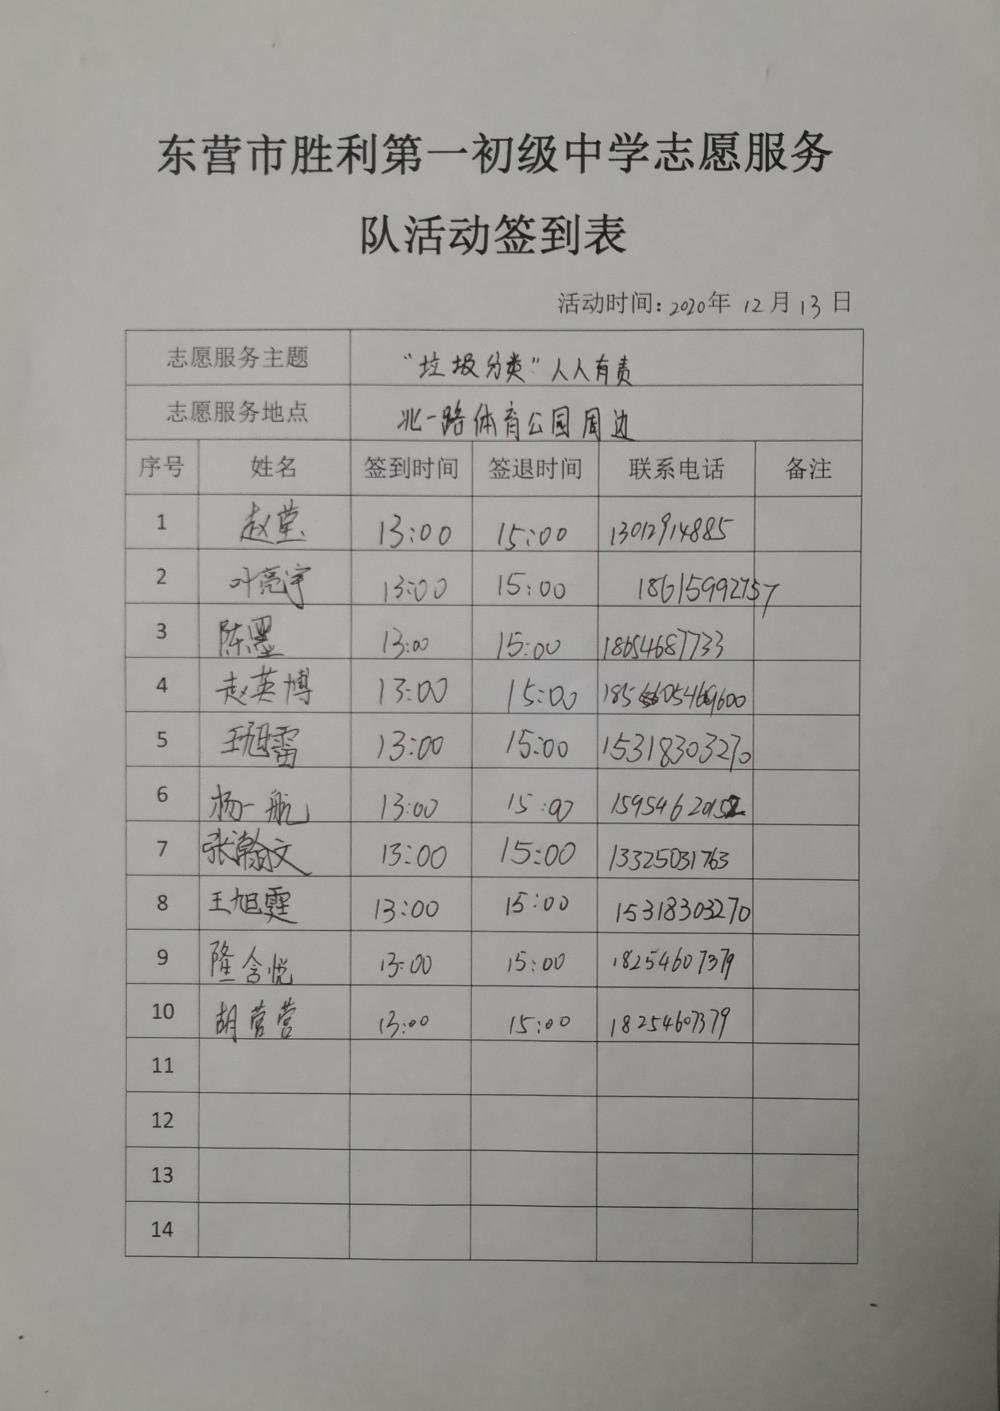 东营市胜利第一初级中学志愿服务
队活动签到表
活动时间:2020年 12月 13日
志愿服务主题 “垃圾分类”人人有责
志愿服务地点 北一路体育公园周边
序号 姓名 签到时间 签退时间 联系电话 备注
1 赵莹 13:00 15:00 13012914885
2 叶亮宇 13:00 15:00 18615992757
3 陈墨 13:00 15:00 18654687733
4 赵英博 13:00 15:00
5 王旭雷 13:00 15:00 15318303270
6 杨一航 13:00 15:00
7 张瀚文 13:00 15:00 13325031763
8 王旭霆 13:00 15:00 15318303270
9 隆含悦 13:00 15:00 18254607379
10 胡营营 13:00 15:00 18254607379
11
12
13
14